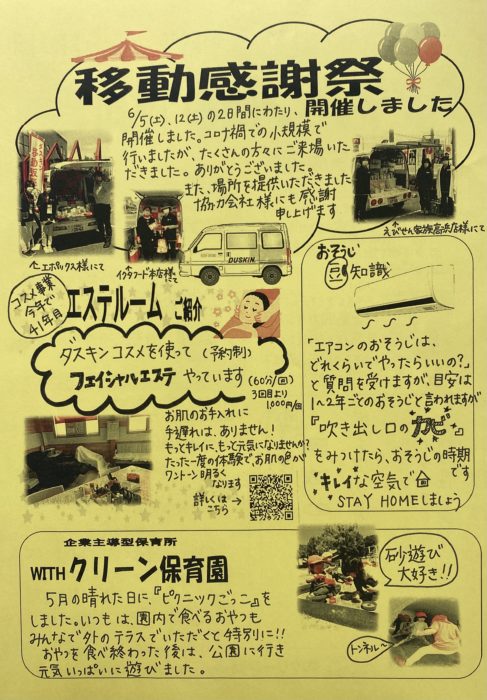 移動感謝祭
開催しました
6/5(土)、12(土)の2日間にわたり、
開催しました。コロナ禍での小規模で
行いましたが、たくさんの方々にご来場いた
だきました。ありがとうございました。
また、場所を提供いただきました
協力会社様にも感謝
申し上げます
↑エポックス様にて
↑イクタフード本店様にて
↑えびせん家族高浜店様にて
DUSKIN
コスメ事業
今年で
41年目
エステルーム ご紹介
ダスキンコスメを使って (予約制)
フェイシャルエステ やっています (60分/回)
3回目より
1,000円/回
お肌のお手入れに
手遅れは、ありません!
もっとキレイに、もっと元気になりませんか?
たった一度の体験で、お肌の色が
ワントーン明るく
なります
詳しくは→
こちら
おそうじ
豆知識
「エアコンのおそうじは、
どれくらいでやったらいいの?」
と質問を受けますが、目安は
1~2年ごとのおそうじと言われますが
『吹き出し口のカビ』
をみつけたら、おそうじの時期
です
キレイな空気で
STAY HOMEしましょう
企業主導型保育所
WITHクリーン保育園
5月の晴れた日に、『ピクニックごっこ』を
しました。いつもは、園内で食べるおやつも
みんなで外のテラスでいただくと特別に!!
おやつを食べ終わった後は、公園に行き
元気いっぱいに遊びました。
砂遊び
大好き!!
トンネル~